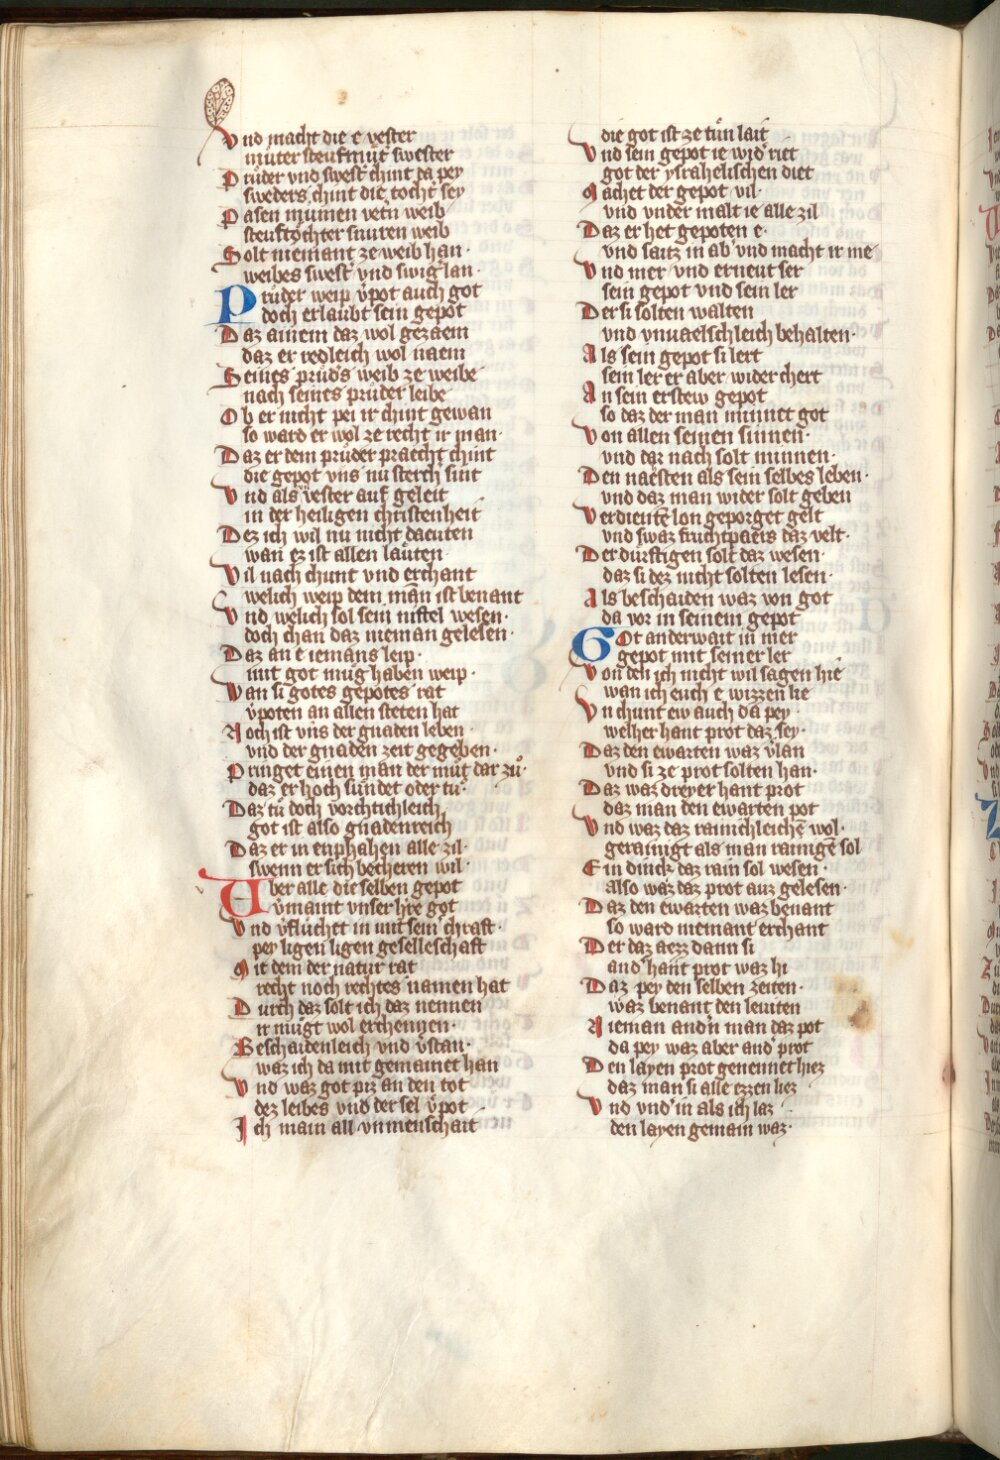 Vnd macht die e vester
muter steufmut swester
Pruder vnd swest' chint da pey
sweders chint die tocht' sey
Pasen mumen vetn weib
steuftochter snuren weib
Solt niemant ze weib han·
weibes swest' vnd swig' lan·
Pruder weip v̓pot auch got
doch erlaubt sein gepot
Daz ainem daz wol gezaem
daz er redleich wol naem
Seines prud's weib ze weibe
nach seines pruder leibe
Ob er nicht pei ir chint gewan
so ward er wol ze recht ir man·
Daz er dem pruder praecht chint
die gepot vns nu sterch sint
Vnd als vester auf geleit
in der heiligen christenheit
Dez ich wil nu nicht daeuten
wan ez ist allen lauten
Vil nach chunt vnd erchant
welich weip dem man ist benant
Vnd welich sol sein niftel wesen·
doch chan daz nieman gelesen·
Daz an e iemans leip·
mit got mug haben weip·
Wan si gotes gepotes rat
v̓poten an allen steten hat
Noch ist vns der gnaden leben·
vnd der gnaden zeit gegeben·
Pringet einen man der mut dar zu·
daz er hoch sundet oder tu·
Daz tu doch vorchtichleich
got ist also gnadenreich
Daz er in enphahen alle zil·
swenn er sich becheren wil·
Uber alle die selben gepot
v̓maint vnser h̄re got
Vnd v̓fluchet in mit sein' chraft·
pey ligen ligen geselleschaft
Mit dem der natur rat
recht noch rechtes namen hat
Durch daz solt ich daz nennen
ir mugt wol erchennen·
Beschaidenleich vnd v̓stan·
waz ich da mit gemainet han
Vnd waz got piz an den tot
dez leibes vnd der sel v̓pot
Ich main all vnmenschait
die got ist ze tun lait
Vnd sein gepot ie wid' riet
got der ysrahelischen diet
Machet der gepot vil·
vnd vnder malt ie alle zil
Daz er het gepoten e·
vnd satz in ab' vnd macht ir me
Vnd mer vnd erneut ser
sein gepot vnd sein ler
Der si solten walten
vnd vnuaelschleich behalten·
Als sein gepot si lert
sein ler er aber wider chert
An sein erstew gepot
so daz der man minnet got
Von allen seinen sinnen·
vnd dar nach solt minnen·
Den naesten als sein selbes leben·
vnd daz man wider solt geben
Verdientē lon geporget gelt
vnd swaz fruchtpaers daz velt·
Der durftigen solt daz wesen·
daz si dez nicht solten lesen·
Als beschaiden waz von got
da vor in seinem gepot
Got anderwait in mer
gepot mit seiner ler
Von den ich nicht wil sagen hie
wan ich euch e wizzen lie
Vn chunt ew auch da pey
welher hant prot daz sey·
Daz den ewarten waz v̓lan
vnd si ze prot solten han·
Daz waz dreyer hant prot
daz man den ewarten pot
Vnd waz daz rainchleichē wol·
gerainigt als man rainigē sol
Ein dinck daz rain sol wesen·
also waz daz prot auz gelesen·
Daz den ewarten waz benant
so ward niemant erchant
Der daz aezz dann si
and' hant prot waz hi
Daz pey den selben zeiten·
waz benant den leuiten
Nieman and'n man daz pot
da pey waz aber and' prot
Den layen prot genennet hiez
daz man si alle ezzen liez
Vnd vnd' in als ich laz
den layen gemain waz·